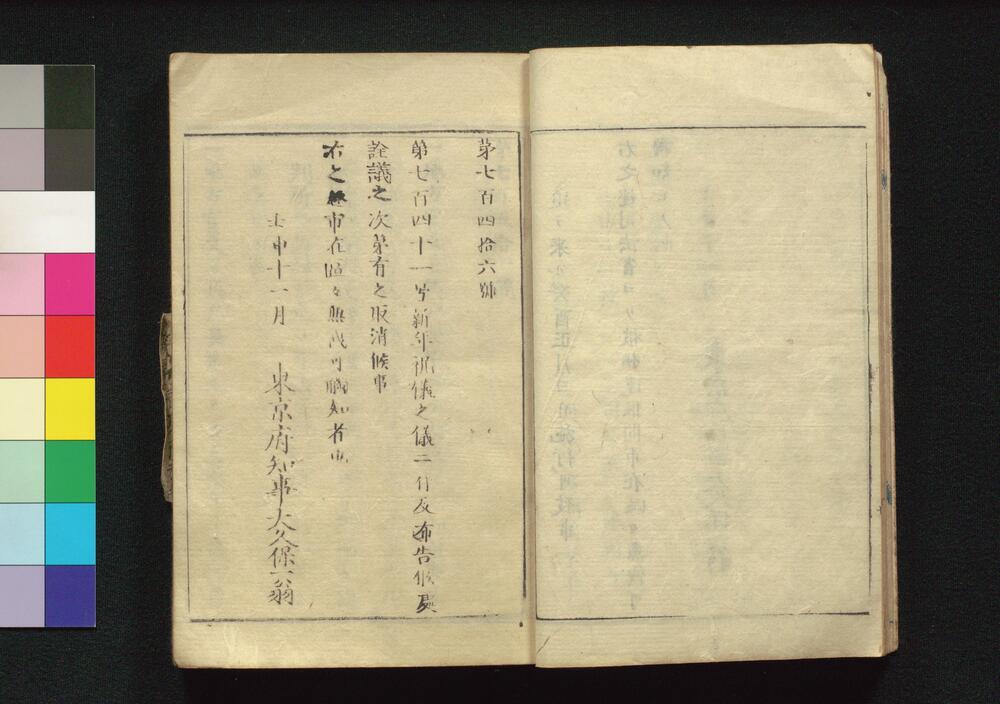 第七百四拾六號
第七百四十一号新年祝儀之儀ニ付及布告候處
詮議之次第有之取消候事
右之趣市在區々無洩可觸知者也
壬申十一月　東京府知事大久保一翁